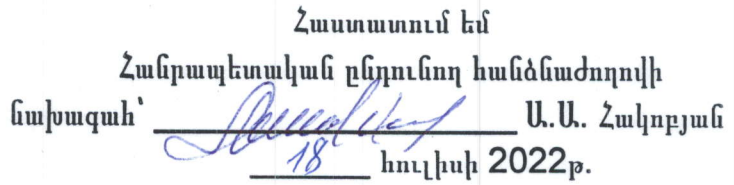 Հաստատում եմ
Հանրապետական ընդունող հանձնաժողովի
նախագահ՝ Ա.Ա. Հակոբյան
18 հուլիսի 2022թ.